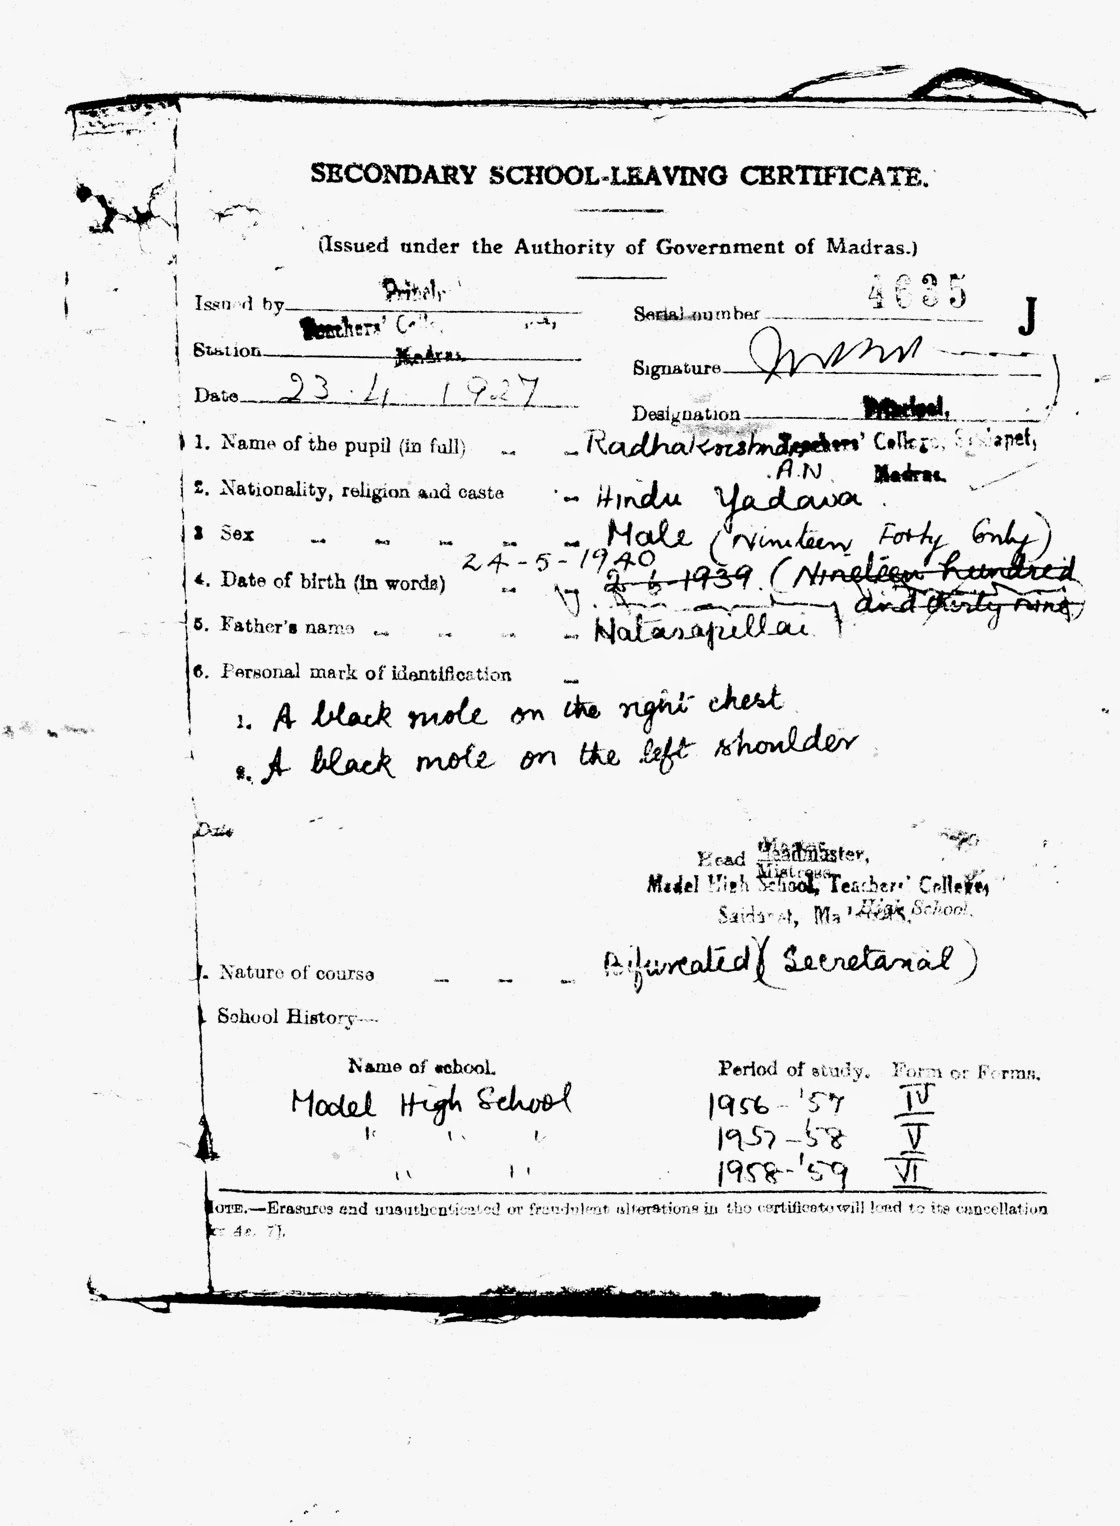 SECONDARY SCHOOL-LEAVING CERTIFICATE.
(Issued under the Authority of Government of Madras.)
Issued by
Teachers' College
Station Madras
Date 23.4.1927
Serial number 4635 J
Signature
Designation Principal,
Teachers' College, Saidapet,
Madras.
1. Name of the pupil (in full) Radhakrishnan
A.N.
2. Nationality, religion and caste Hindu Yadava.
3 Sex Male (Nineteen Forty Only)
24-5-1940
4. Date of birth (in words) 1939. (Nineteen hundred
and thirty nine)
5. Father's name Natasapillai
6. Personal mark of identification
1. A black mole on the right chest
2. A black mole on the left shoulder
Date
Head Master
Headmaster,
Mistress
Model High School, Teachers' College,
Saidapet, Madras.
High School.
Nature of course Bifurcated (Secretarial)
School History—
Name of school. Period of study. Form or Forms.
Model High School 1956-'57 IV
" " " 1957-58 V
" " 1958-'59 VI
NOTE.—Erasures and unauthenticated or fraudulent alterations in the certificate will lead to its cancellation